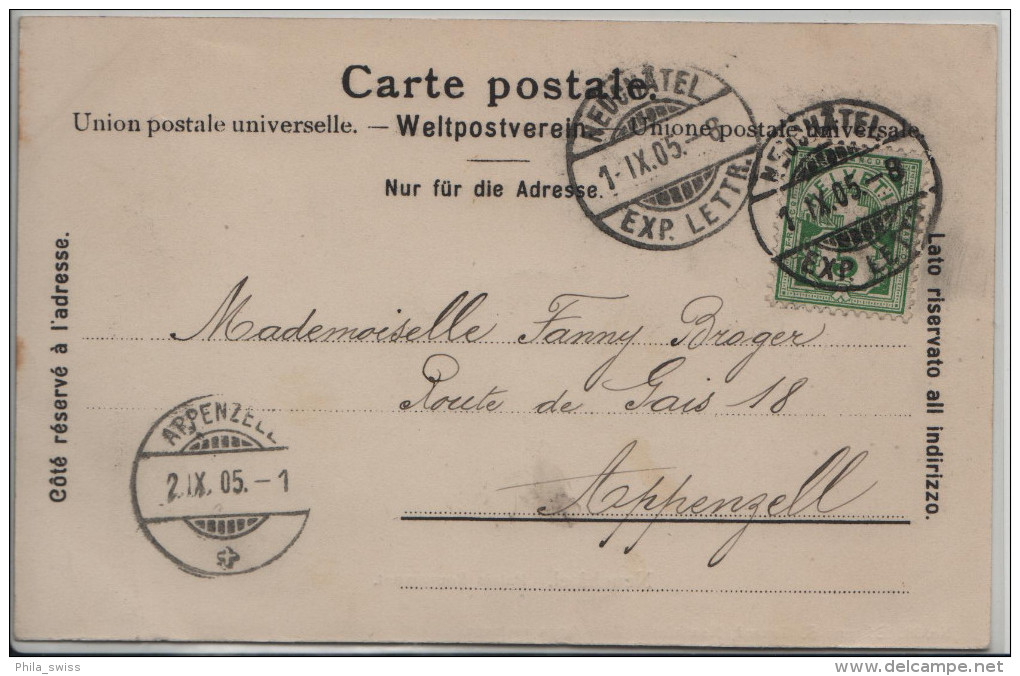 Carte postale.
Union postale universelle. — Weltpostverein. — Unione postale universale.
Nur für die Adresse.
NEUCHÂTEL
1-IX.05.-8
EXP. LETTR.
NEUCHÂTEL
1-IX.05-8
EXP. LETTR.
HELVETIA
5
Côté réservé à l'adresse.
Lato riservato all indirizzo.
Mademoiselle Fanny Broger
Route de Gais 18
Appenzell
APPENZELL
2.IX.05.-1
Phila_swiss
www.delcampe.net